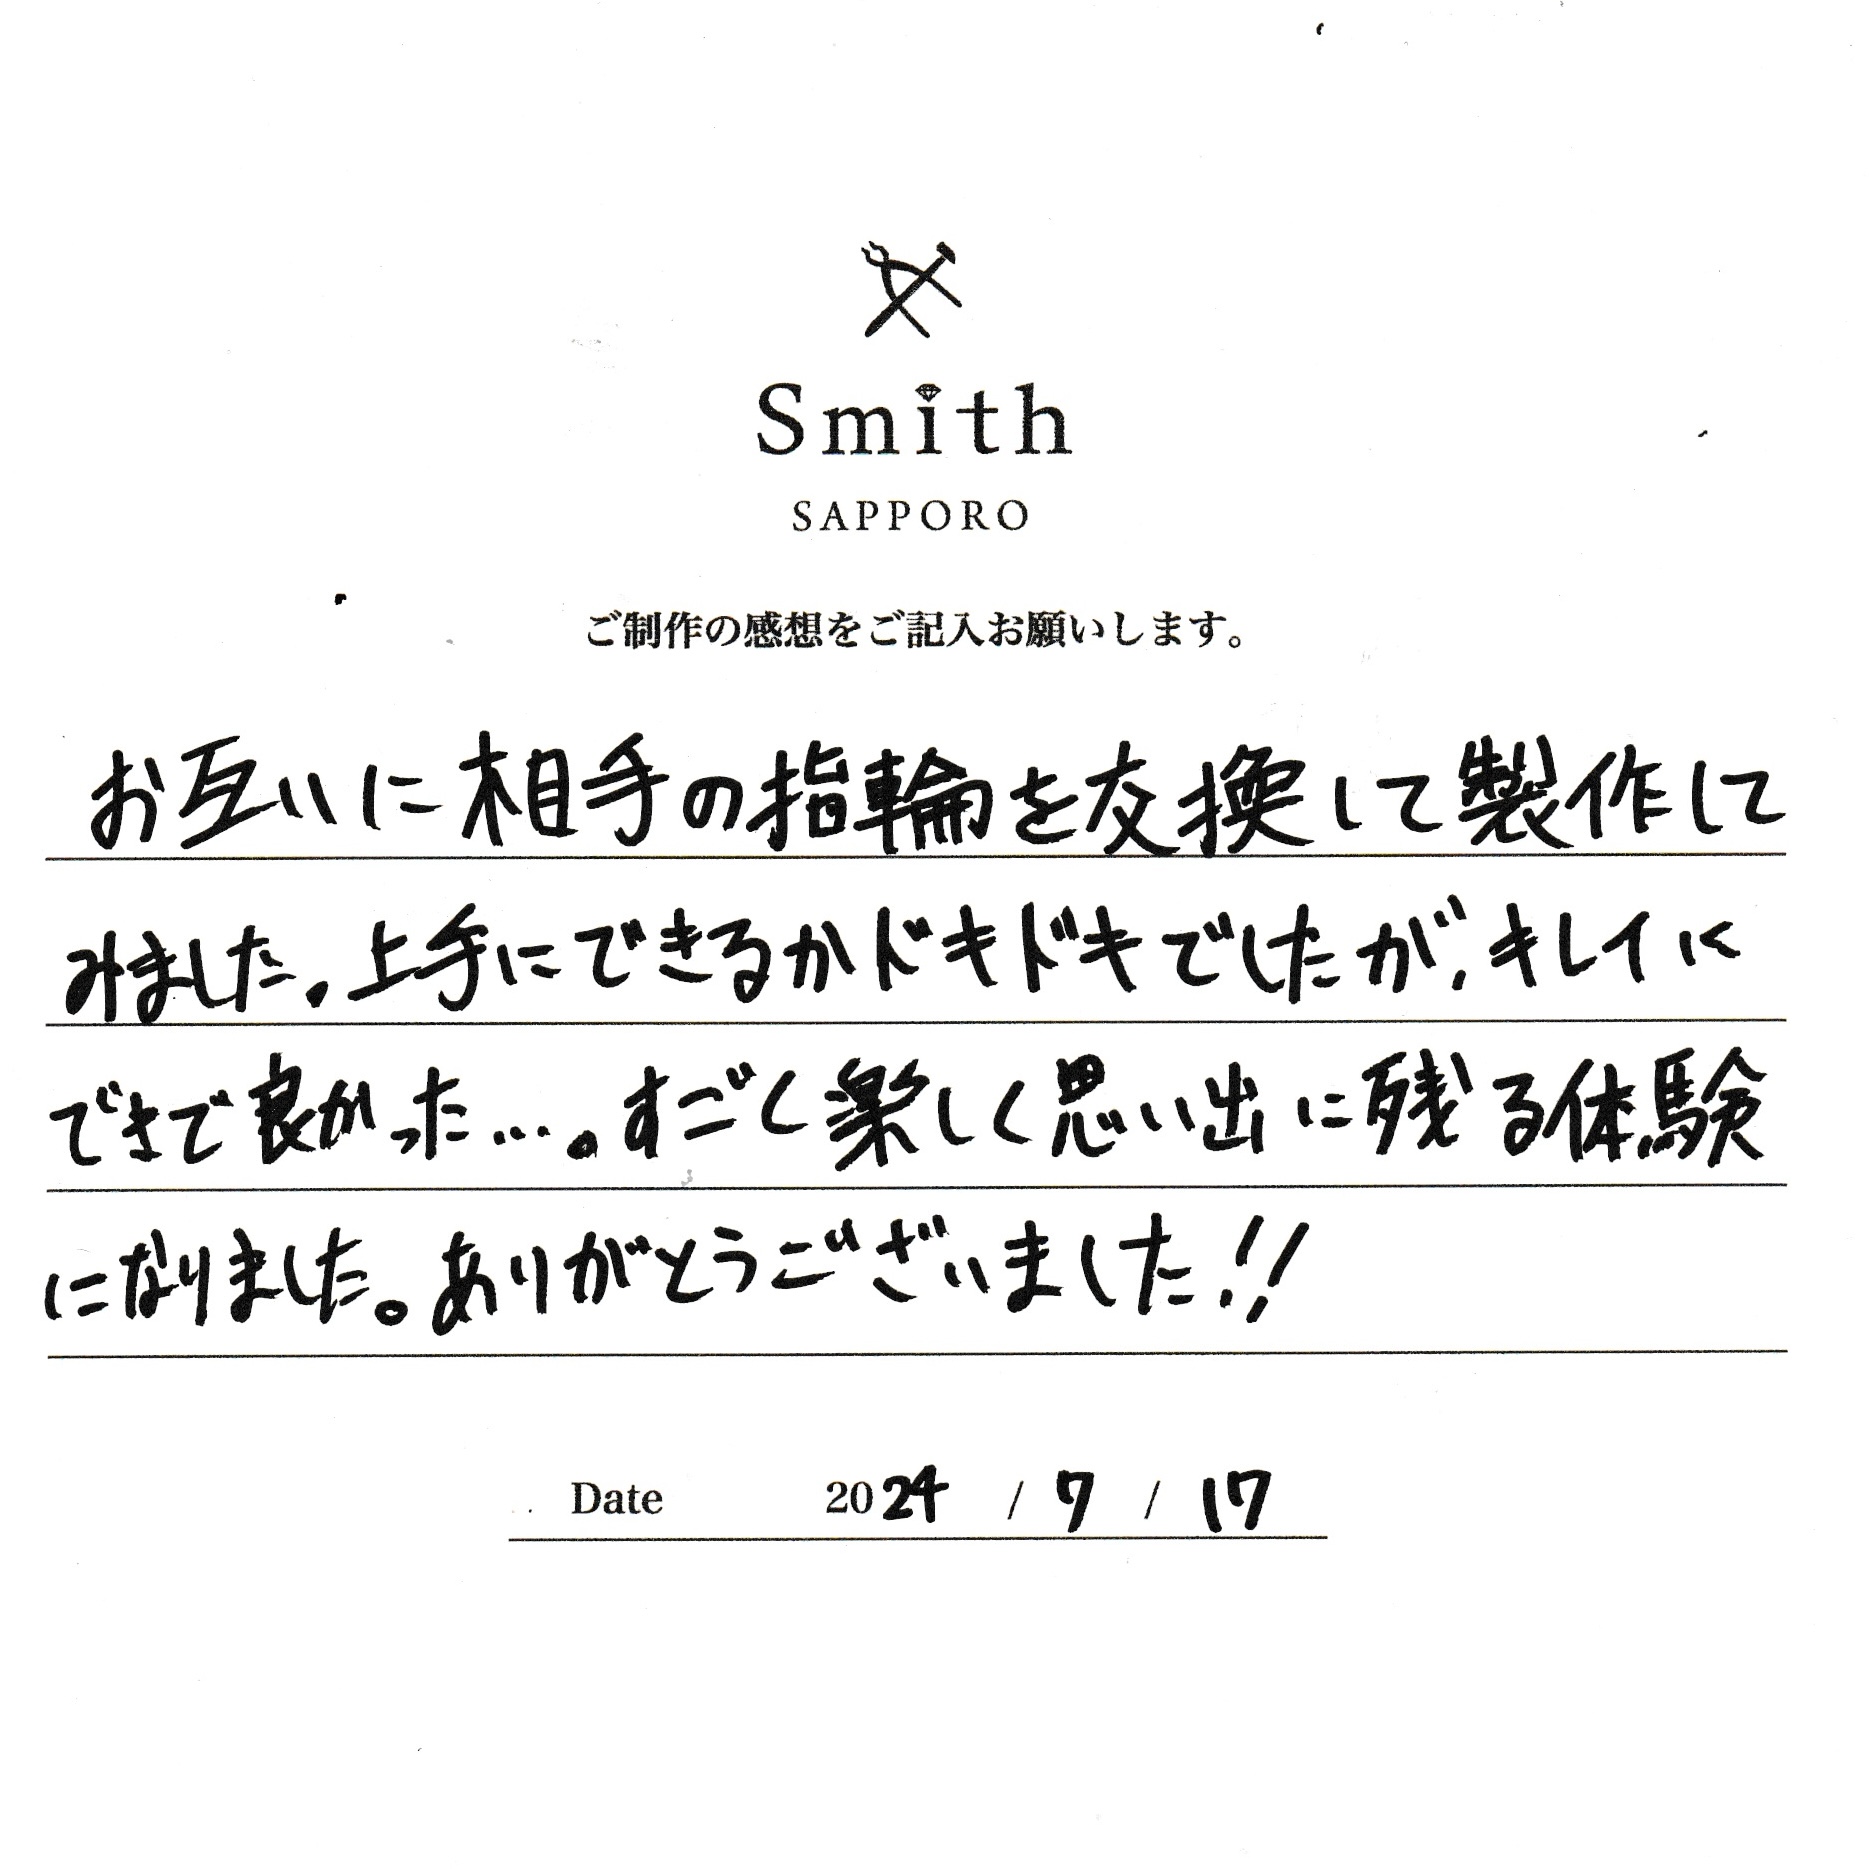 Smith
SAPPORO
ご制作の感想をご記入お願いします。
お互いに相手の指輪を交換して製作して
みました。上手にできるかドキドキでしたが、キレイに
できて良かった…。すごく楽しく思い出に残る体験
になりました。ありがとうございました!!
Date 2024 / 7 / 17